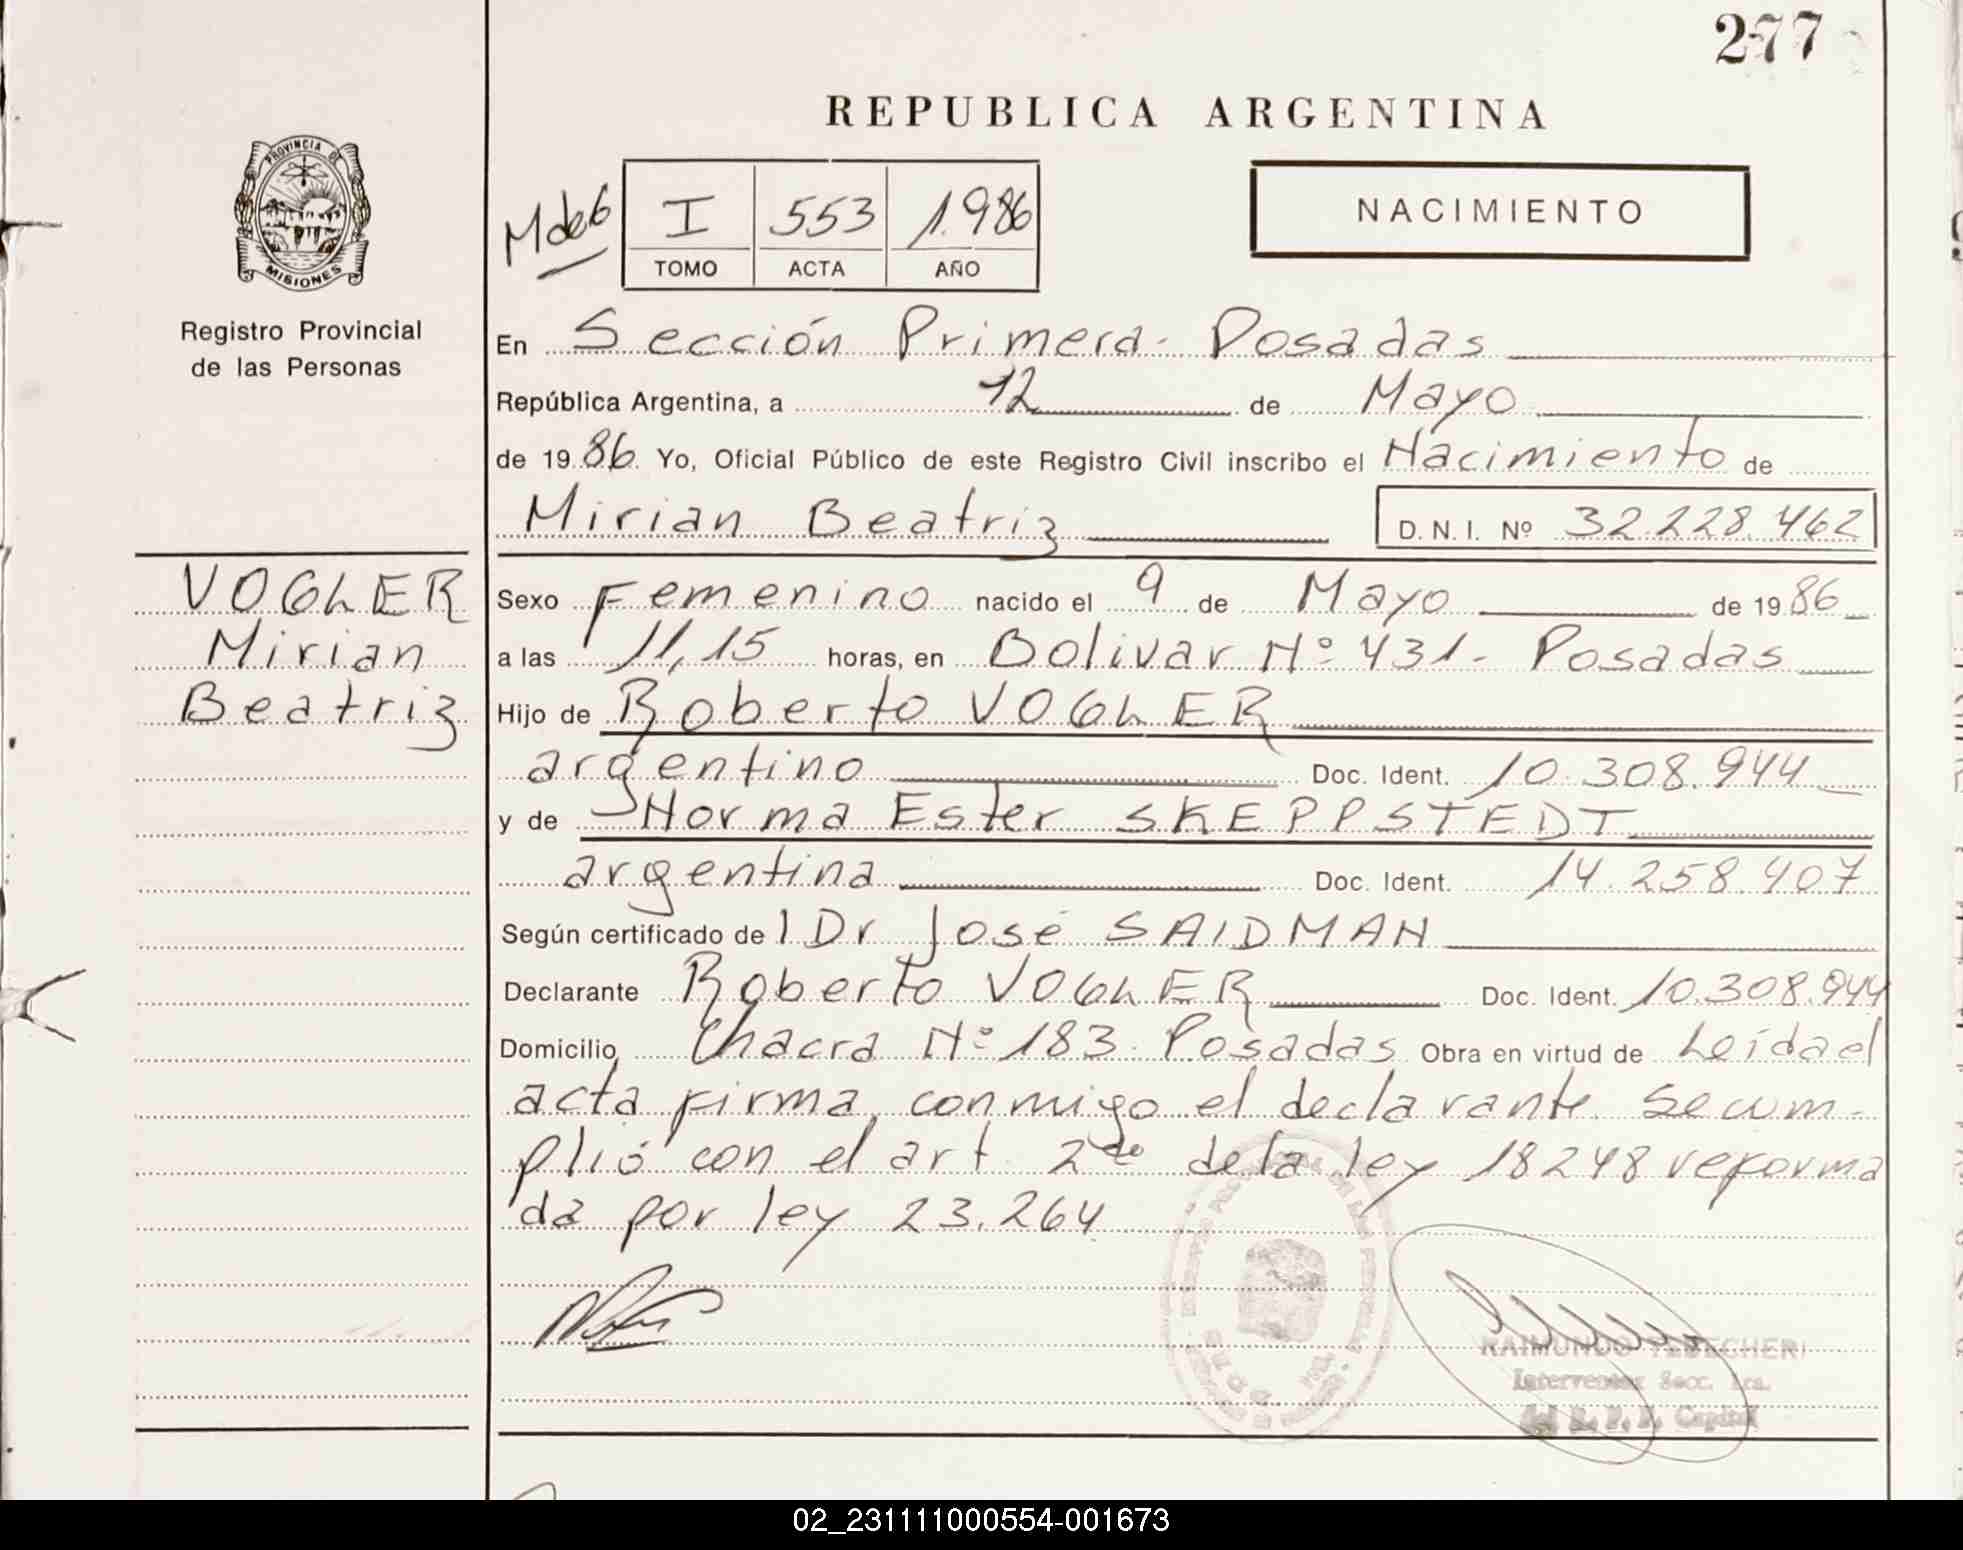 277
REPUBLICA ARGENTINA
PROVINCIA DE
MISIONES
Registro Provincial
de las Personas
I 553 1.986
TOMO ACTA AÑO
NACIMIENTO
En Sección Primera - Posadas
República Argentina, a 12 de Mayo
de 19 86 Yo, Oficial Público de este Registro Civil inscribo el Nacimiento de
Mirian Beatriz D. N. I. Nº 32.228.462
VOGLER
Mirian
Beatriz
Sexo Femenino nacido el 9 de Mayo de 19 86
a las 11,15 horas, en Bolivar Nº 431 - Posadas
Hijo de Roberto VOGLER
argentino Doc. Ident. 10.308.944
y de Norma Ester SKEPPSTEDT
argentina Doc. Ident. 14.258.407
Según certificado de l Dr José SAIDMAN
Declarante Roberto VOGLER Doc. Ident. 10.308.944
Domicilio Chacra Nº 183. Posadas Obra en virtud de Leída el
acta firma conmigo el declarante. Se cum-
plió con el art 2do de la ley 18248 reforma
da por ley 23.264
RAIMUNDO
Interventor Secc. 1ra.
Capital
02_231111000554-001673